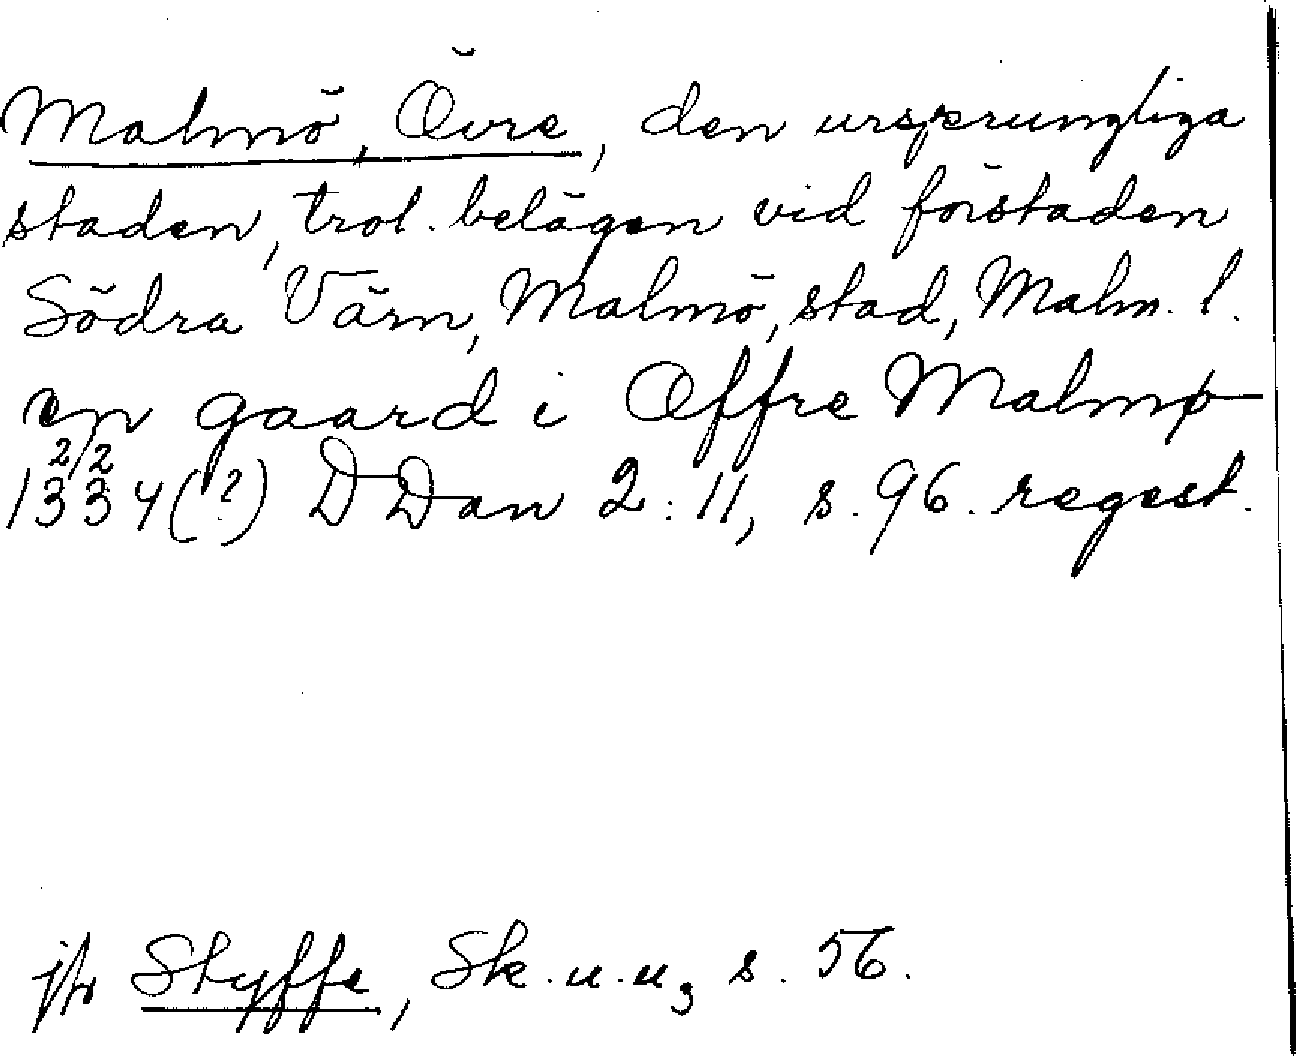 Malmö, Övre, den ursprungliga
staden, trol. belägen vid förstaden
Södra Värn, Malmö, stad, Malm. l.
en gaard i Øffre Malmø
2/2
1334(?) DDan 2:11, s. 96. regest.
jfr Styffe, Sk.u.u, s. 56.